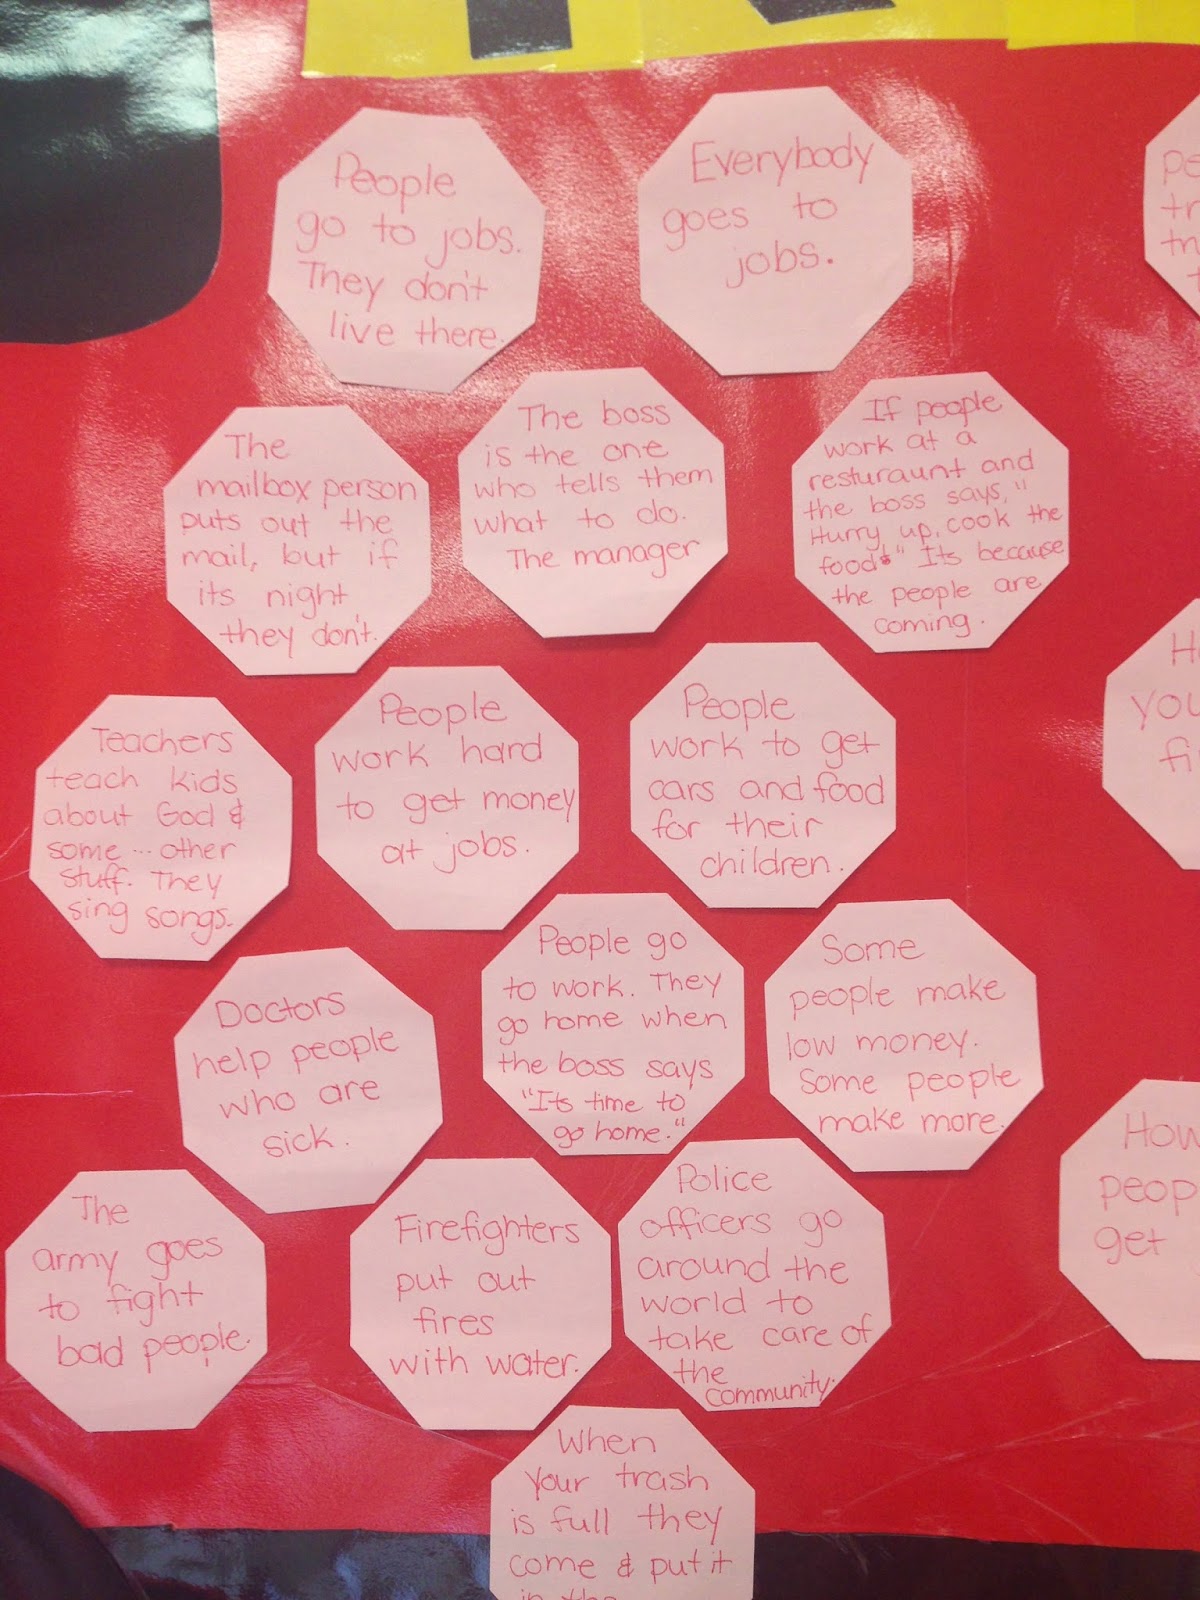 People
go to jobs.
They don't
live there.
Everybody
goes to
jobs.
The
mailbox person
puts out the
mail, but if
its night
they don't.
The boss
is the one
who tells them
what to do.
The manager
If people
work at a
resturaunt and
the boss says, "
Hurry up, cook the
food." Its because
the people are
coming.
Teachers
teach kids
about God &
some ... other
stuff. They
sing songs.
People
work hard
to get money
at jobs.
People
work to get
cars and food
for their
children.
Doctors
help people
who are
sick.
People go
to work. They
go home when
the boss says
"Its time to
go home."
Some
people make
low money.
Some people
make more.
The
army goes
to fight
bad people.
Firefighters
put out
fires
with water.
Police
officers go
around the
world to
take care of
the
community.
When
your trash
is full they
come & put it
in the
How
get